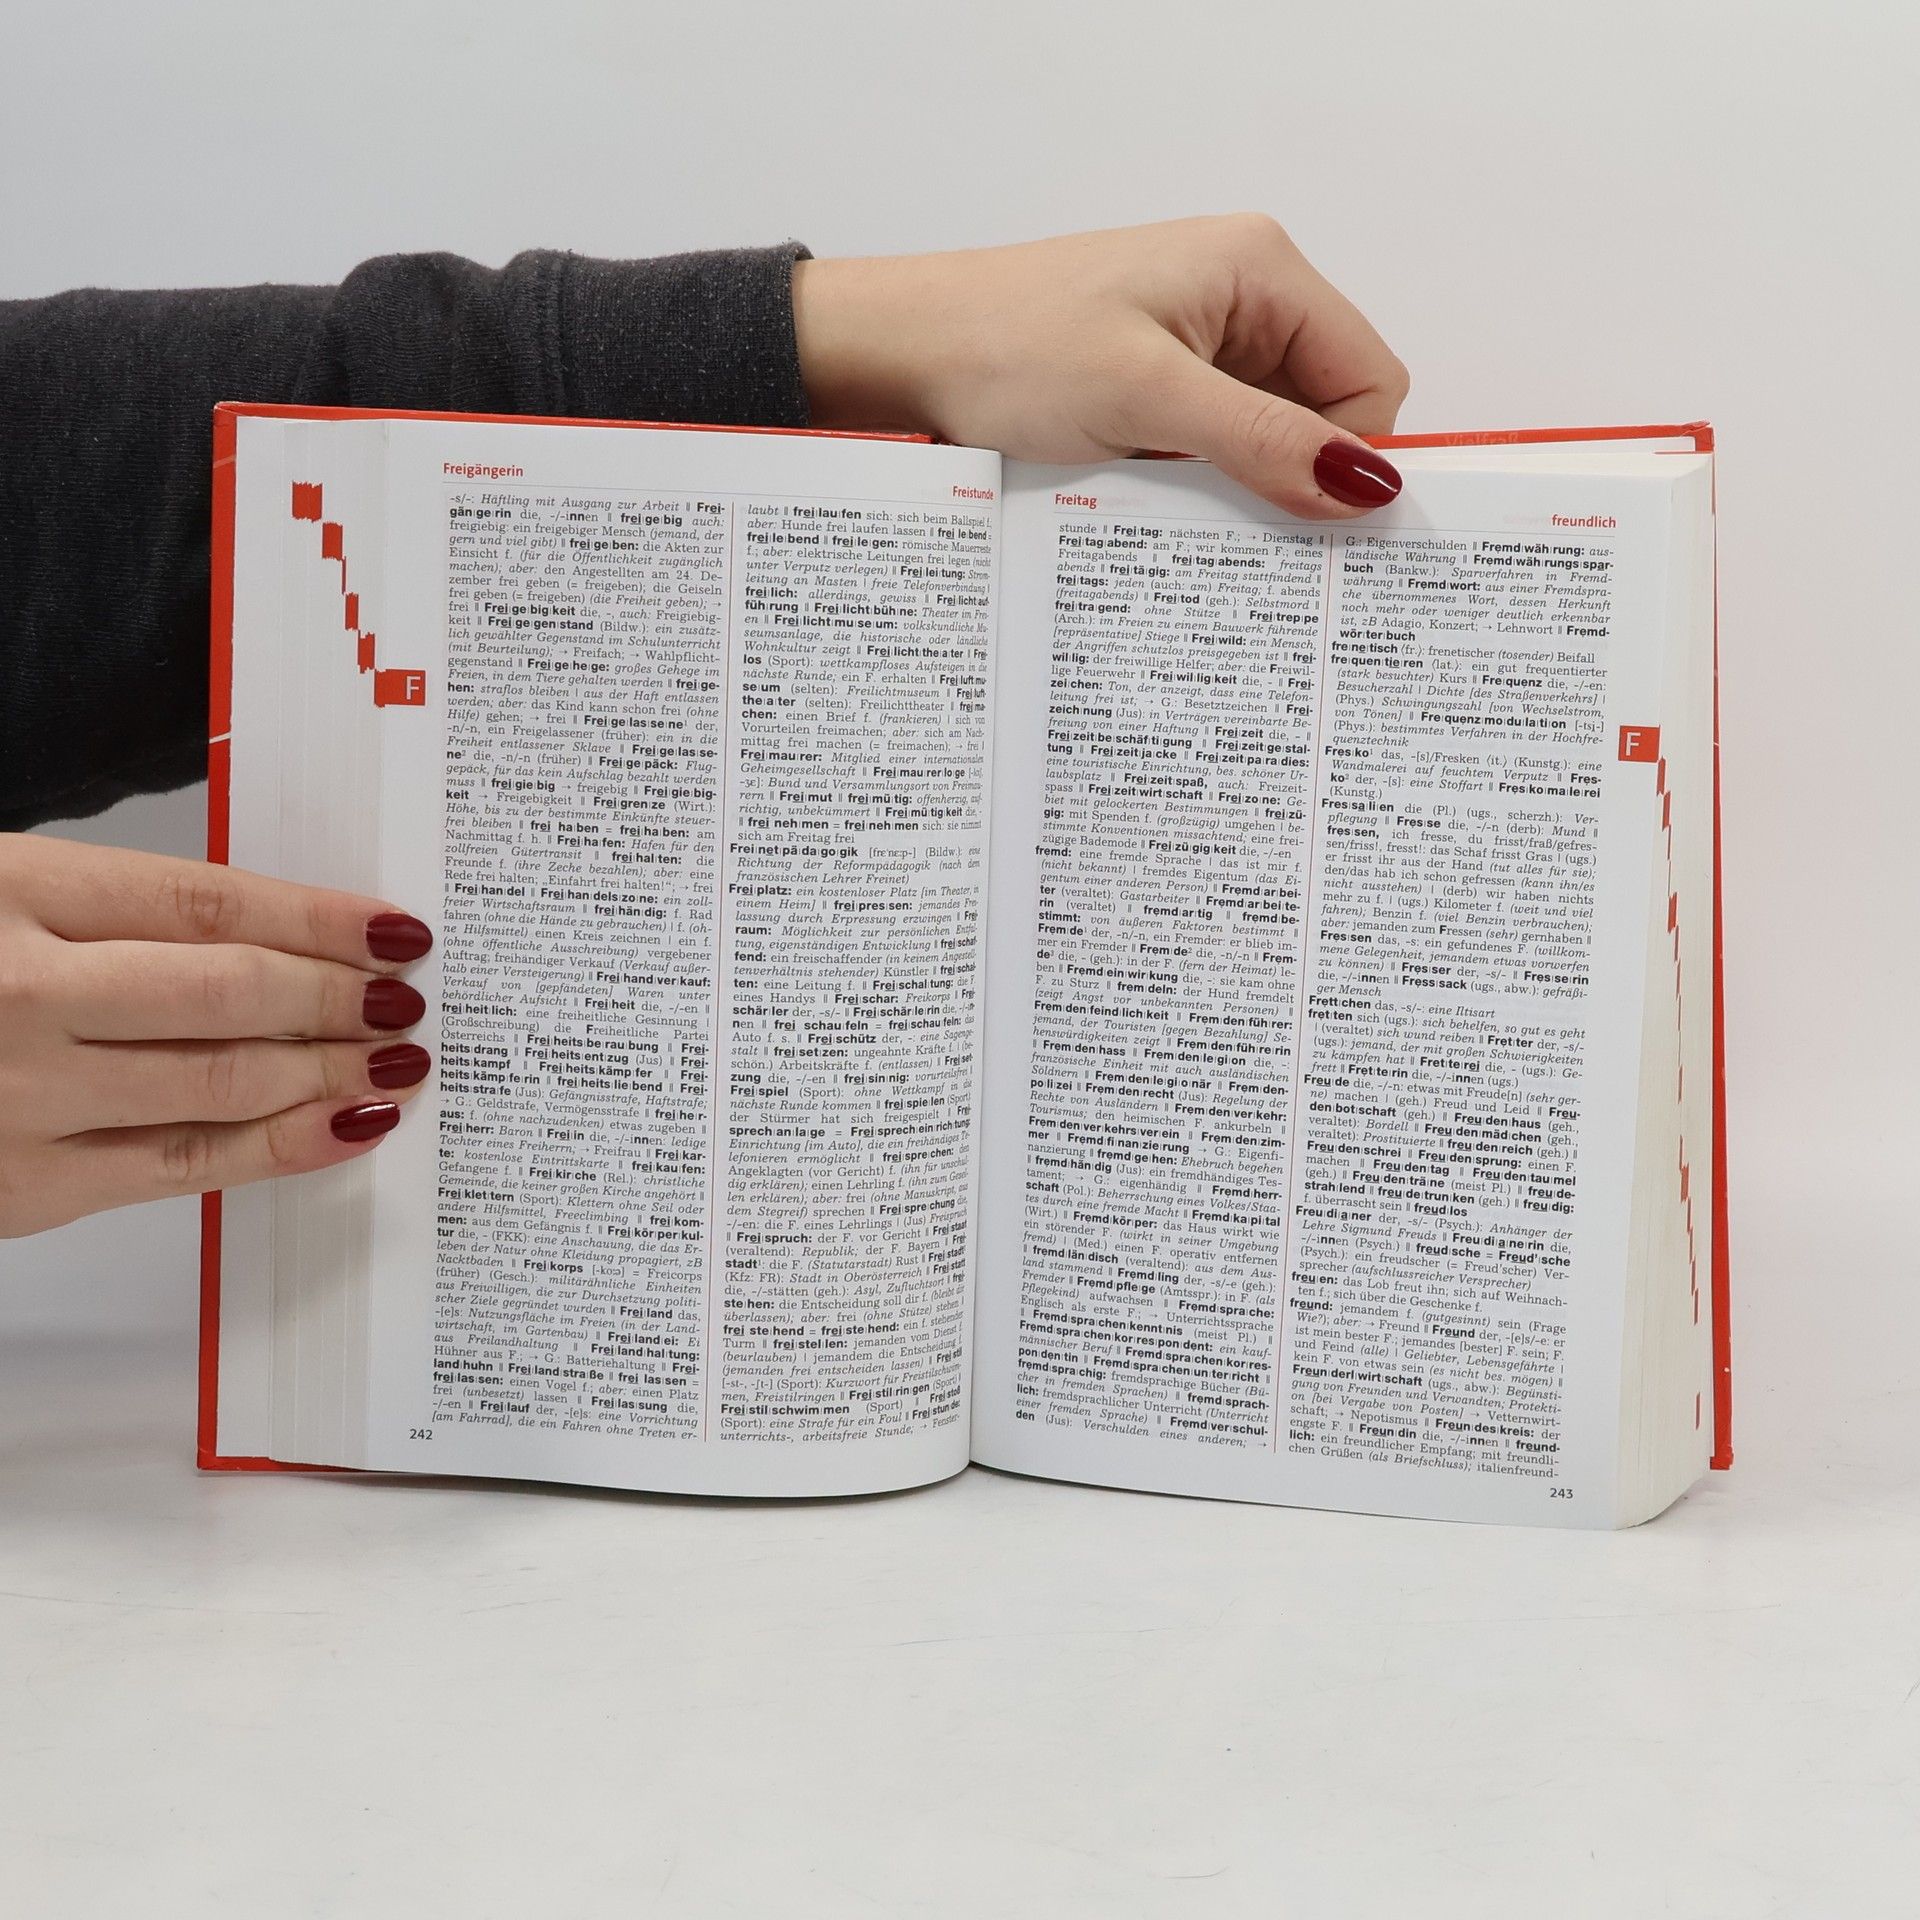 Freigängerin
Freistunde
-s/-: Häftling mit Ausgang zur Arbeit ‖ Frei-
gän|ge|rin die, -/-innen ‖ frei|ge|big auch:
freigiebig: ein freigebiger Mensch (jemand, der
gern und viel gibt) ‖ frei|ge|ben: die Akten zur
Einsicht f. (für die Öffentlichkeit zugänglich
machen); aber: den Angestellten am 24. De-
zember frei geben (= freigeben); die Geiseln
frei geben (= freigeben) (die Freiheit geben); →
frei ‖ Frei|ge|big|keit die, -, auch: Freigiebig-
keit ‖ Frei|ge|gen|stand (Bildw.): ein zusätz-
lich gewählter Gegenstand im Schulunterricht
(mit Beurteilung); → Freifach; → Wahlpflicht-
gegenstand ‖ Frei|ge|he|ge: großes Gehege im
Freien, in dem Tiere gehalten werden ‖ frei|ge-
hen: straflos bleiben | aus der Haft entlassen
werden; aber: das Kind kann schon frei (ohne
Hilfe) gehen; → frei ‖ Frei|ge|las|se|ne¹ der,
-n/-n, ein Freigelassener (früher): ein in die
Freiheit entlassener Sklave ‖ Frei|ge|las|se-
ne² die, -n/-n (früher) ‖ Frei|ge|päck: Flug-
gepäck, für das kein Aufschlag bezahlt werden
muss ‖ frei|gie|big → freigebig ‖ Frei|gie|big-
keit → Freigebigkeit ‖ Frei|gren|ze (Wirt.):
Höhe, bis zu der bestimmte Einkünfte steuer-
frei bleiben ‖ frei ha|ben = frei|ha|ben: am
Nachmittag f. h. ‖ Frei|ha|fen: Hafen für den
zollfreien Gütertransit ‖ frei|hal|ten: die
Freunde f. (ihre Zeche bezahlen); aber: eine
Rede frei halten; „Einfahrt frei halten!“; → frei
‖ Frei|han|del ‖ Frei|han|dels|zo|ne: ein zoll-
freier Wirtschaftsraum ‖ frei|hän|dig: f. Rad
fahren (ohne die Hände zu gebrauchen) | f. (oh-
ne Hilfsmittel) einen Kreis zeichnen | ein f.
(ohne öffentliche Ausschreibung) vergebener
Auftrag; freihändiger Verkauf (Verkauf außer-
halb einer Versteigerung) ‖ Frei|hand|ver|kauf:
Verkauf von [gepfändeten] Waren unter
behördlicher Aufsicht ‖ Frei|heit die, -/-en ‖
frei|heit|lich: eine freiheitliche Gesinnung |
(Großschreibung) die Freiheitliche Partei
Österreichs ‖ Frei|heits|be|rau|bung ‖ Frei-
heits|drang ‖ Frei|heits|ent|zug (Jus) ‖ Frei-
heits|kampf ‖ Frei|heits|kämp|fer ‖ Frei-
heits|kämp|fe|rin ‖ frei|heits|lie|bend ‖ Frei-
heits|stra|fe (Jus): Gefängnisstrafe, Haftstrafe;
→ G.: Geldstrafe, Vermögensstrafe ‖ frei|he|r-
aus: f. (ohne nachzudenken) etwas zugeben ‖
Frei|herr: Baron ‖ Frei|in die, -/-innen: ledige
Tochter eines Freiherrn; → Freifrau ‖ Frei|kar-
te: kostenlose Eintrittskarte ‖ frei|kau|fen:
Gefangene f. ‖ Frei|kir|che (Rel.): christliche
Gemeinde, die keiner großen Kirche angehört ‖
Frei|klet|tern (Sport): Klettern ohne Seil oder
andere Hilfsmittel, Freeclimbing ‖ frei|kom-
men: aus dem Gefängnis f. ‖ Frei|kör|per|kul-
tur die, - (FKK): eine Anschauung, die das Er-
leben der Natur ohne Kleidung propagiert, zB
Nacktbaden ‖ Frei|korps [-koːɐ] = Freicorps
(früher) (Gesch.): militärähnliche Einheiten
aus Freiwilligen, die zur Durchsetzung politi-
scher Ziele gegründet wurden ‖ Frei|land das,
-[e]s: Nutzungsfläche im Freien (in der Land-
wirtschaft, im Gartenbau) ‖ Frei|land|ei: Ei
aus Freilandhaltung ‖ Frei|land|hal|tung:
Hühner aus F.; → G.: Batteriehaltung ‖ Frei-
land|huhn ‖ Frei|land|stra|ße ‖ frei las|sen =
frei|las|sen: einen Vogel f.; aber: einen Platz
frei (unbesetzt) lassen ‖ Frei|las|sung die,
-/-en ‖ Frei|lauf der, -[e]s: eine Vorrichtung
[am Fahrrad], die ein Fahren ohne Treten er-
242
laubt ‖ frei|lau|fen sich: sich beim Ballspiel f.;
aber: Hunde frei laufen lassen ‖ frei le|bend =
frei|le|bend ‖ frei|le|gen: römische Mauerreste
f.; aber: elektrische Leitungen frei legen (nicht
unter Verputz verlegen) ‖ Frei|lei|tung: Strom-
leitung an Masten | freie Telefonverbindung |
frei|lich: allerdings, gewiss ‖ Frei|licht|auf-
füh|rung ‖ Frei|licht|büh|ne: Theater im Frei-
en ‖ Frei|licht|mu|se|um: volkskundliche Mu-
seumsanlage, die historische oder ländliche
Wohnkultur zeigt ‖ Frei|licht|the|a|ter ‖ Frei-
los (Sport): wettkampfloses Aufsteigen in die
nächste Runde; ein F. erhalten ‖ Frei|luft|mu-
se|um (selten): Freilichtmuseum ‖ Frei|luft-
the|a|ter (selten): Freilichttheater ‖ frei|ma-
chen: einen Brief f. (frankieren) | sich von
Vorurteilen freimachen; aber: sich am Nach-
mittag frei machen (= freimachen); → frei |
Frei|mau|rer: Mitglied einer internationalen
Geheimgesellschaft ‖ Frei|mau|rer|lo|ge
-ʒe]: Bund und Versammlungsort von Freimau-
rern ‖ Frei|mut ‖ frei|mü|tig: offenherzig, auf-
richtig, unbekümmert ‖ Frei|mü|tig|keit die, -
‖ frei neh|men = frei|neh|men sich: sie nimmt
sich am Freitag frei
Frei|net|pä|da|go|gik (Bildw.): eine
Richtung der Reformpädagogik (nach dem
französischen Lehrer Freinet)
Frei|platz: ein kostenloser Platz [im Theater, in
einem Heim] ‖ frei|pres|sen: jemandes Frei-
lassung durch Erpressung erzwingen ‖ Frei-
raum: Möglichkeit zur persönlichen Entfal-
tung, eigenständigen Entwicklung ‖ frei|schaf-
fend: ein freischaffender (in keinem Angestell-
tenverhältnis stehender) Künstler ‖ frei|schal-
ten: eine Leitung f. ‖ Frei|schal|tung: die F.
eines Handys ‖ Frei|schar: Freikorps ‖ Frei-
schär|ler der, -s/- ‖ Frei|schär|le|rin die, -/-in-
nen ‖ frei schau|feln = frei|schau|feln: das
Auto f. s. ‖ Frei|schütz der, -: eine Sagenge-
stalt ‖ frei|set|zen: ungeahnte Kräfte f. | (be-
schön.) Arbeitskräfte f. (entlassen) ‖ Frei|set-
zung die, -/-en ‖ frei|sin|nig: vorurteilsfrei ‖
Frei|spiel (Sport): ohne Wettkampf in die
nächste Runde kommen ‖ frei|spie|len (Sport):
der Stürmer hat sich freigespielt ‖ Frei-
sprech|an|la|ge = Frei|sprech|ein|rich|tung:
Einrichtung [im Auto], die ein freihändiges Te-
lefonieren ermöglicht ‖ frei|spre|chen: den
Angeklagten (vor Gericht) f. (ihn für unschul-
dig erklären); einen Lehrling f. (ihn zum Gesel-
len erklären); aber: frei (ohne Manuskript, aus
dem Stegreif) sprechen ‖ Frei|spre|chung die,
-/-en: die F. eines Lehrlings | (Jus) Freispruch
‖ Frei|spruch: der F. vor Gericht ‖ Frei|staat
(veraltend): Republik; der F. Bayern ‖ Frei-
stadt¹: die F. (Statutarstadt) Rust ‖ Frei|stadt²
(Kfz: FR): Stadt in Oberösterreich ‖ Frei|statt
die, -/-stätten (geh.): Asyl, Zufluchtsort ‖ frei-
ste|hen: die Entscheidung soll dir f. (bleibt dir
überlassen); aber: frei (ohne Stütze) stehen ‖
frei ste|hend = frei|ste|hend: ein f. stehender
Turm ‖ frei|stel|len: jemanden vom Dienst f.
(beurlauben) | jemandem die Entscheidung f.
(jemanden frei entscheiden lassen) ‖ Frei|stil
[-st-, -ʃt-] (Sport): Kurzwort für Freistilschwim-
men, Freistilringen ‖ Frei|stil|rin|gen (Sport) ‖
Frei|stil|schwim|men (Sport) ‖ Frei|stoß
(Sport): eine Strafe für ein Foul ‖ Frei|stun|de:
unterrichts-, arbeitsfreie Stunde; → Fenster-
F
Freitag
freundlich
stunde ‖ Frei|tag: nächsten F.; → Dienstag ‖
Frei|tag|abend: am F.; wir kommen F.; eines
Freitagabends ‖ frei|tag|abends: freitags
abends ‖ frei|tä|gig: am Freitag stattfindend ‖
frei|tags: jeden (auch: am) Freitag; f. abends
(freitagabends) ‖ Frei|tod (geh.): Selbstmord ‖
frei|tra|gend: ohne Stütze ‖ Frei|trep|pe
(Arch.): im Freien zu einem Bauwerk führende
[repräsentative] Stiege ‖ Frei|wild: ein Mensch,
der Angriffen schutzlos preisgegeben ist ‖ frei-
wil|lig: der freiwillige Helfer; aber: die Freiwil-
lige Feuerwehr ‖ Frei|wil|lig|keit die, - ‖ Frei-
zei|chen: Ton, der anzeigt, dass eine Telefon-
leitung frei ist; → G.: Besetztzeichen ‖ Frei-
zeich|nung (Jus): in Verträgen vereinbarte Be-
freiung von einer Haftung ‖ Frei|zeit die, - ‖
Frei|zeit|be|schäf|ti|gung ‖ Frei|zeit|ge|stal-
tung ‖ Frei|zeit|ja|cke ‖ Frei|zeit|pa|ra|dies:
eine touristische Einrichtung, bes. schöner Ur-
laubsplatz ‖ Frei|zeit|spaß, auch: Freizeit-
spass ‖ Frei|zeit|wirt|schaft ‖ Frei|zo|ne: Ge-
biet mit gelockerten Bestimmungen ‖ frei|zü-
gig: mit Spenden f. (großzügig) umgehen | be-
stimmte Konventionen missachtend; eine frei-
zügige Bademode ‖ Frei|zü|gig|keit die, -/-en
fremd: eine fremde Sprache | das ist mir f.
(nicht bekannt) | fremdes Eigentum (das Ei-
gentum einer anderen Person) ‖ Fremd|ar|bei-
ter (veraltet): Gastarbeiter ‖ Fremd|ar|bei|te-
rin (veraltet) ‖ fremd|ar|tig ‖ fremd|be-
stimmt: von äußeren Faktoren bestimmt ‖
Frem|de¹ der, -n/-n, ein Fremder: er blieb im-
mer ein Fremder ‖ Frem|de² die, -n/-n ‖ Frem-
de³ die, - (geh.): in der F. (fern der Heimat) le-
ben ‖ Fremd|ein|wir|kung die, -: sie kam ohne
F. zu Sturz ‖ frem|deln: der Hund fremdelt
(zeigt Angst vor unbekannten Personen) ‖
Frem|den|feind|lich|keit ‖ Frem|den|füh|rer:
jemand, der Touristen [gegen Bezahlung] Se-
henswürdigkeiten zeigt ‖ Frem|den|füh|re|rin
‖ Frem|den|hass ‖ Frem|den|le|gi|on die, -:
französische Einheit mit auch ausländischen
Söldnern ‖ Frem|den|le|gi|o|när ‖ Frem|den-
po|li|zei ‖ Frem|den|recht (Jus): Regelung der
Rechte von Ausländern ‖ Frem|den|ver|kehr:
Tourismus; den heimischen F. ankurbeln ‖
Frem|den|ver|kehrs|ver|ein ‖ Frem|den|zim-
mer ‖ Fremd|fi|nan|zie|rung → G.: Eigenfi-
nanzierung ‖ fremd|ge|hen: Ehebruch begehen
‖ fremd|hän|dig (Jus): ein fremdhändiges Tes-
tament; → G.: eigenhändig ‖ Fremd|herr-
schaft (Pol.): Beherrschung eines Volkes/Staa-
tes durch eine fremde Macht ‖ Fremd|ka|pi|tal
(Wirt.) ‖ Fremd|kör|per: das Haus wirkt wie
ein störender F. (wirkt in seiner Umgebung
fremd) | (Med.) einen F. operativ entfernen
‖ fremd|län|disch (veraltend): aus dem Aus-
land stammend ‖ Fremd|ling der, -s/-e (geh.):
Fremder ‖ Fremd|pfle|ge (Amtsspr.): in F. (als
Pflegekind) aufwachsen ‖ Fremd|spra|che:
Englisch als erste F.; → Unterrichtssprache
‖ Fremd|spra|chen|kennt|nis (meist Pl.) ‖
Fremd|spra|chen|kor|res|pon|dent: ein kauf-
männischer Beruf ‖ Fremd|spra|chen|kor|res-
pon|den|tin ‖ Fremd|spra|chen|un|ter|richt ‖
fremd|spra|chig: fremdsprachige Bücher (Bü-
cher in fremden Sprachen) ‖ fremd|sprach-
lich: fremdsprachlicher Unterricht (Unterricht
einer fremden Sprache) ‖ Fremd|ver|schul-
den (Jus): Verschulden eines anderen; →
G.: Eigenverschulden ‖ Fremd|wäh|rung: aus-
ländische Währung ‖ Fremd|wäh|rungs|spar-
buch (Bankw.): Sparverfahren in Fremd-
währung ‖ Fremd|wort: aus einer Fremdspra-
che übernommenes Wort, dessen Herkunft
noch mehr oder weniger deutlich erkennbar
ist, zB Adagio, Konzert; → Lehnwort ‖ Fremd-
wör|ter|buch
fre|ne|tisch ⟨fr.⟩: frenetischer (tosender) Beifall
fre|quen|tie|ren ⟨lat.⟩: ein gut frequentierter
(stark besuchter) Kurs ‖ Fre|quenz die, -/-en:
Besucherzahl | Dichte [des Straßenverkehrs] |
(Phys.) Schwingungszahl [von Wechselstrom,
von Tönen] ‖ Fre|quenz|mo|du|la|ti|on [-tsi-]
(Phys.): bestimmtes Verfahren in der Hochfre-
quenztechnik
Fres|ko¹ das, -[s]/Fresken ⟨it.⟩ (Kunstg.): eine
Wandmalerei auf feuchtem Verputz ‖ Fres-
ko² der, -[s]: eine Stoffart ‖ Fres|ko|ma|le|rei
(Kunstg.)
Fres|sa|li|en die (Pl.) (ugs., scherzh.): Ver-
pflegung ‖ Fres|se die, -/-n (derb): Mund ‖
fres|sen, ich fresse, du frisst/fraß/gefres-
sen/friss!, fresst!: das Schaf frisst Gras | (ugs.)
er frisst ihr aus der Hand (tut alles für sie);
den/das hab ich schon gefressen (kann ihn/es
nicht ausstehen) | (derb) wir haben nichts
mehr zu f. | (ugs.) Kilometer f. (weit und viel
fahren); Benzin f. (viel Benzin verbrauchen);
aber: jemanden zum Fressen (sehr) gernhaben ‖
Fres|sen das, -s: ein gefundenes F. (willkom-
mene Gelegenheit, jemandem etwas vorwerfen
zu können) ‖ Fres|ser der, -s/- ‖ Fres|se|rin
die, -/-innen ‖ Fress|sack (ugs., abw.): gefräßi-
ger Mensch
Frett|chen das, -s/-: eine Iltisart
fret|ten sich (ugs.): sich behelfen, so gut es geht
| (veraltet) sich wund reiben ‖ Fret|ter der, -s/-
(ugs.): jemand, der mit großen Schwierigkeiten
zu kämpfen hat ‖ Fret|te|rei die, - (ugs.): Ge-
frett ‖ Fret|te|rin die, -/-innen (ugs.)
Freu|de die, -/-n: etwas mit Freude[n] (sehr ger-
ne) machen | (geh.) Freud und Leid ‖ Freu-
den|bot|schaft (geh.) ‖ Freu|den|haus (geh.,
veraltet): Bordell ‖ Freu|den|mäd|chen (geh.,
veraltet): Prostituierte ‖ freu|den|reich (geh.) ‖
Freu|den|schrei ‖ Freu|den|sprung: einen F.
machen ‖ Freu|den|tag ‖ Freu|den|tau|mel
(geh.) ‖ Freu|den|trä|ne (meist Pl.) ‖ freu|de-
strah|lend ‖ freu|de|trun|ken (geh.) ‖ freu|dig:
f. überrascht sein ‖ freud|los
Freu|di|a|ner der, -s/- (Psych.): Anhänger der
Lehre Sigmund Freuds ‖ Freu|di|a|ne|rin die,
-/-innen (Psych.) ‖ freud|sche = Freud’|sche
(Psych.): ein freudscher (= Freud’scher) Ver-
sprecher (aufschlussreicher Versprecher)
freu|en: das Lob freut ihn; sich auf Weihnach-
ten f.; sich über die Geschenke f.
freund: jemandem f. (gutgesinnt) sein (Frage
Wie?); aber: → Freund ‖ Freund der, -[e]s/-e: er
ist mein bester F.; jemandes [bester] F. sein; F.
und Feind (alle) | Geliebter, Lebensgefährte |
kein F. von etwas sein (es nicht bes. mögen) ‖
Freun|derl|wirt|schaft (ugs., abw.): Begünsti-
gung von Freunden und Verwandten; Protekti-
on [bei Vergabe von Posten] → Vetternwirt-
schaft; → Nepotismus ‖ Freun|des|kreis: der
engste F. ‖ Freun|din die, -/-innen ‖ freund-
lich: ein freundlicher Empfang; mit freundli-
chen Grüßen (als Briefschluss); italienfreund-
243
F